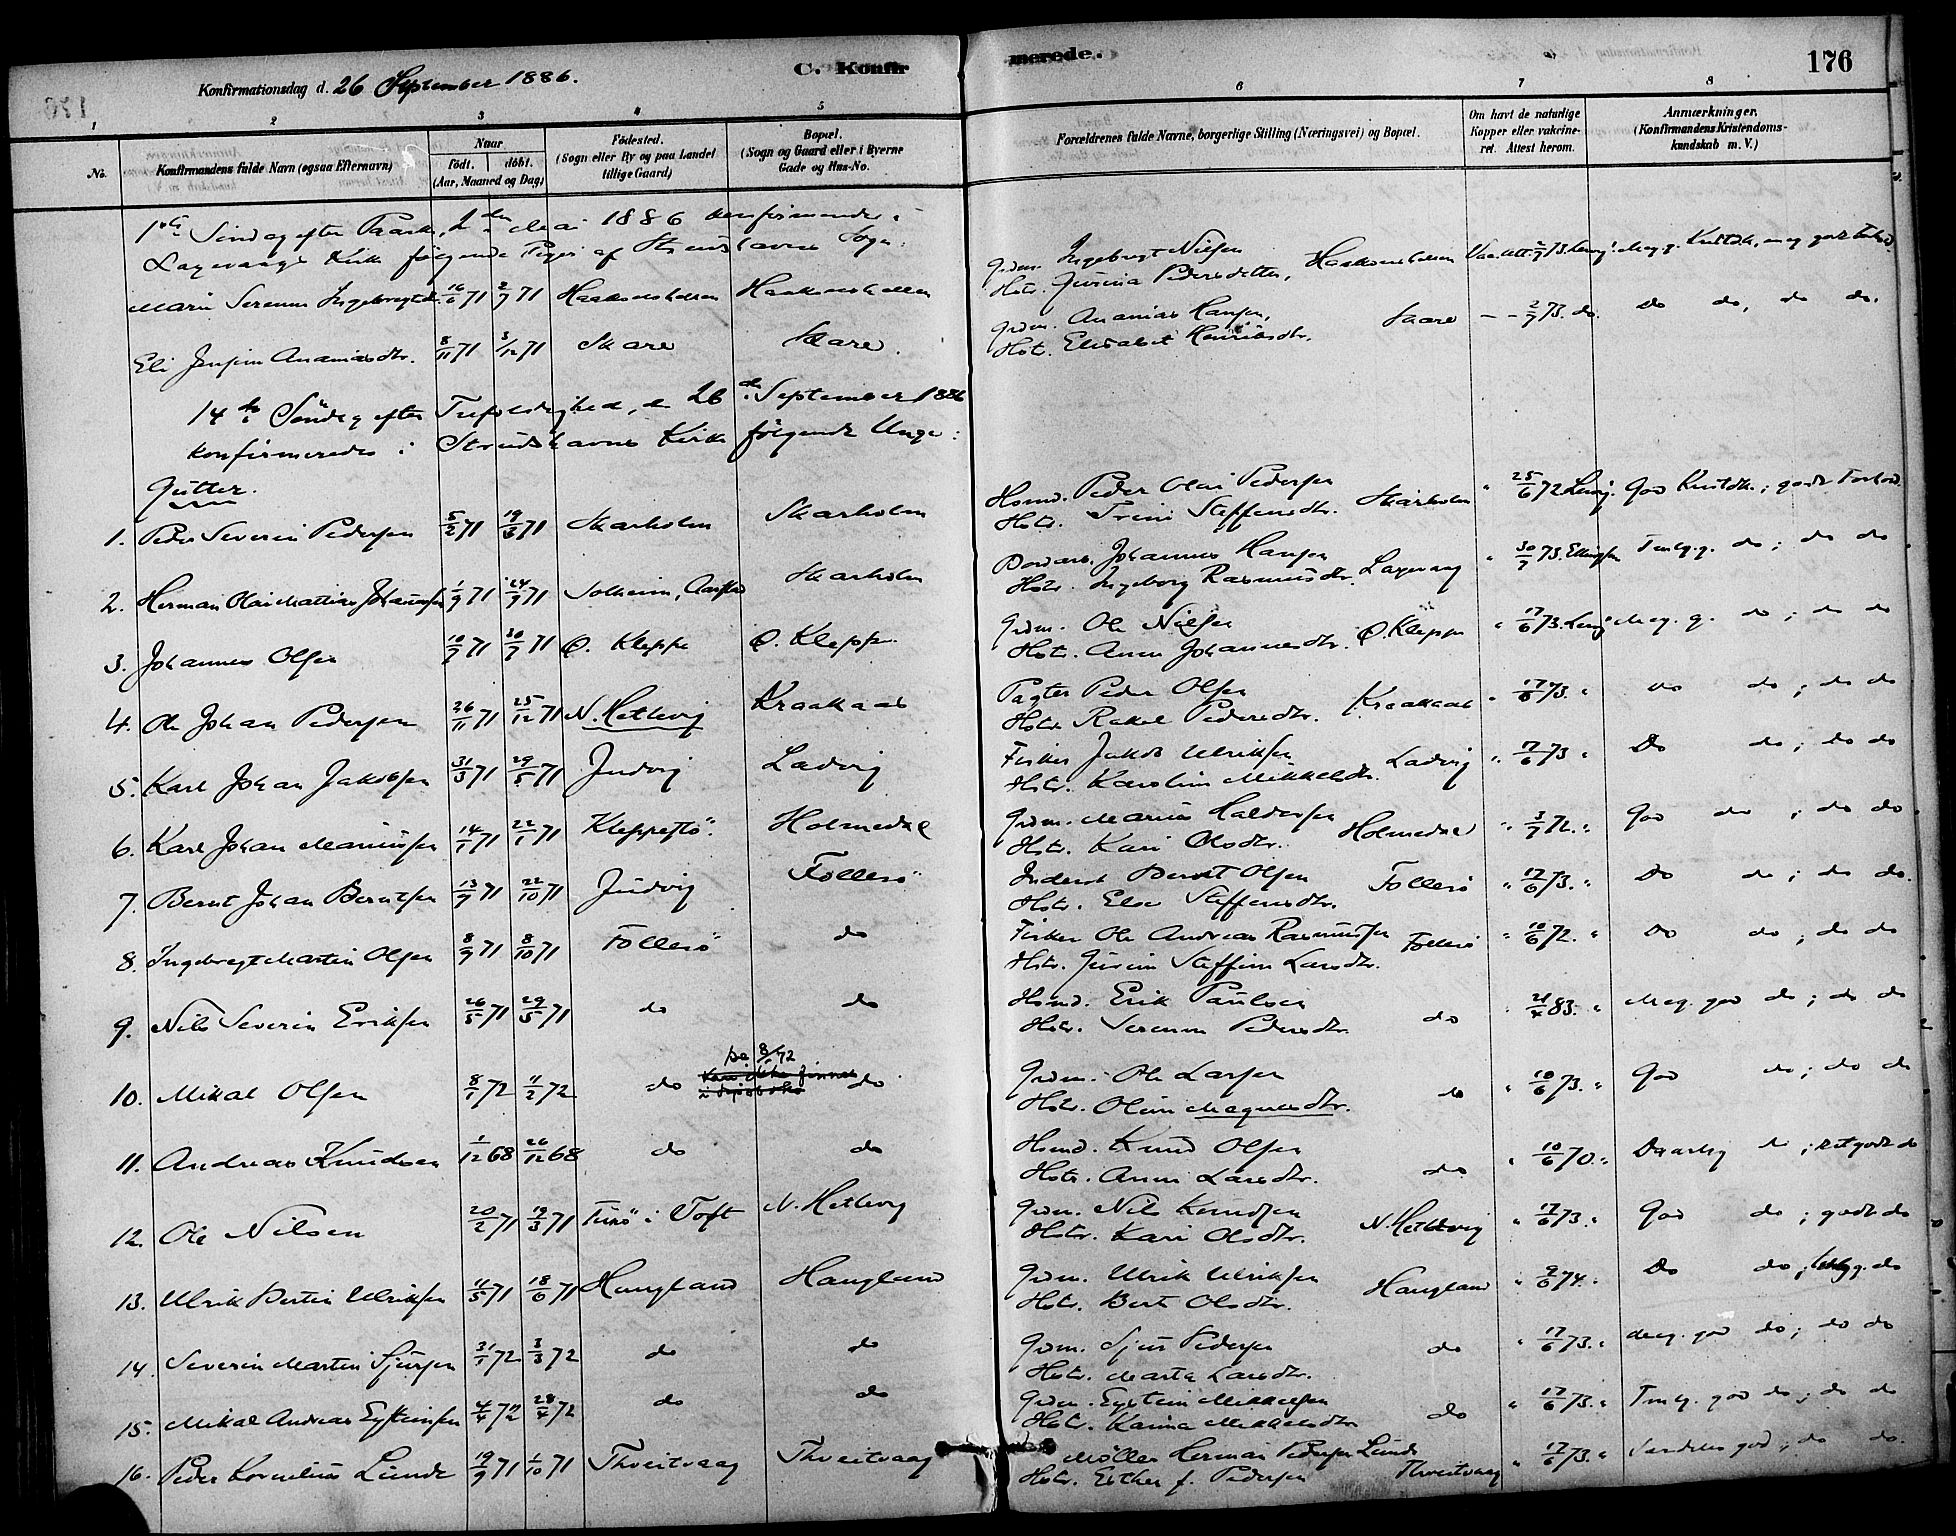 C. Konfirmerede.
176
Konfirmationsdag d. 26 September 1886.
1 2 3 4 5 6 7 8
No.
Konfirmandens fulde Navn (ogsaa Efternavn)
Naar
født. døbt.
(Aar, Maaned og Dag)
Fødested.
(Sogn eller By og paa Landet
tillige Gaard)
Bopæl.
(Sogn og Gaard eller i Byerne
Gade og Hus-No.
Forældrenes fulde Navne, borgerlige Stilling (Næringsvei) og Bopæl.
Om havt de naturlige
Kopper eller vakcine-
ret. Attest herom.
Anmærkninger.
(Konfirmandens Kristendoms-
kundskab m. V.)
1ste Søndag efter Paaske, 2den Mai 1886 konfirmeredes i
Laxevaags Kirke følgende Piger af Strudshavns Sogn:
16/6 71 2/7 71 Haakonshellen Haakonshellen Gdm. Ingebrigt Nielsen Haakonshellen
Hstr.
Eli Ananiasdtr. 8/11 71 3/12 71 Skare Skare Gdm. Ananias Hansen, Skare - - 2/7 73. do. Do do, do do.
Hstr. Elisabet Henriksdtr.
14de Søndag efter Trefoldighed, d. 26de September 1886
konfirmeredes i Strudshavns Kirke følgende Unge:
Gutter.
1. Peder Severin Pedersen 5/2 71 19/3 71 Skarholm Skarholm Hsmd. Peder Olai Pedersen Skarholm " 25/6 72
Hstr. Trine Steffensdtr.
2. Herman Olai Mattias Johannesen 1/9 71 24/9 71 Solheim, Skarholm Johannes Hansen Laxevaag " 30/7 73.
Hstr. Ingeborg Rasmusdtr.
3. Johannes Olsen 10/7 71 30/7 71 Ø. Kleppe Ø. Kleppe Gdm. Ole Nielsen Ø. Kleppe " 17/6 73. Meg. g. do; do do
Hstr. Anna Johannesdtr.
4. Ole Johan Pedersen 26/11 71 25/12 71 N. Hetlevig Kraakaas Pagter Peder Olsen Kraakaas " 17/6 73. " Do do; do do
Hstr. Rakel Pedersdtr.
5. Karl Johan Jakobsen 31/3 71 29/5 71 Judvig Ladvig Fisker Jakob Ulriksen Ladvig " 17/6 73 " Do do; do do
Hstr. Karoline Mikkelsdtr.
6. Karl Johan Mariussen 14/1 71 22/1 71 Kleppestø. Holmedal Gdm. Marius Haldorsen Holmedal " 3/7 72. " God do; do do
Hstr. Kari Olsdtr.
7. Bernt Johan Berntsen 13/9 71 22/10 71 Judvig Follesø Inderst Berndt Olsen Follesø " 17/6 73. " Do do; do do.
Hstr. Else Steffensdtr.
8. Ingebregt Martin Olsen 8/9 71 8/10 71 Follesø do Fisker Ole Andreas Rasmussen Follesø " 10/6 72. " Do do; do do
Hstr. Larsdtr.
9. Nils Severin Eriksen 26/5 71 29/5 71 do do Hsmd. Erik Paulsen do 83. " Meg. god do; do do
Hstr. Pedersdtr.
10. Mikal Olsen 8/1 72 11/2 72 do do Gdm. Ole Larsen do " 10/6 73. " God do; do do
Hstr. Oline Magnesdtr.
11. Andreas Knudsen 1/12 68 26/12 68 do do Hsmd. Knud Olsen do " 10/6 70. " Daarlig ; ret godt do
Hstr. Anna Larsdtr.
12. Ole Nilsen 20/2 71 19/3 71 Turø i Toft N. Hetlevig Gdm. Nils Knudsen N. Hetlevig " 17/6 73. " God do; godt do
Hstr. Kari Olsdtr.
13. Ulrik Bertin Ulriksen 11/5 71 18/6 71 Haugland Haugland Gdm. Ulrik Ulriksen Haugland 74. Do do;
Hstr. Berte Olsdtr.
14. Severin Martin Sjursen 31/1 72 3/3 72 do do Gdm. Sjur Pedersen do " 17/6 73. " Meg. god do; do do
Hstr. Marta Larsdtr.
15. Mikal Andreas Eysteinsen 4/4 72 28/4 72 do do Gdm. Eystein Mikkelsen do " 17/6 73. " Tmlg. god do; do do
Hstr. Karina Mikkelsdtr
16. Peder Kornelius Lunde 19/9 71 1/10 71 Thveitvaag Thveitvaag Møller Herman Pedersen Lunde Thveitvaag " 17/6 73. " Særdeles god; do do.
Hstr. Esther f. Pedersen